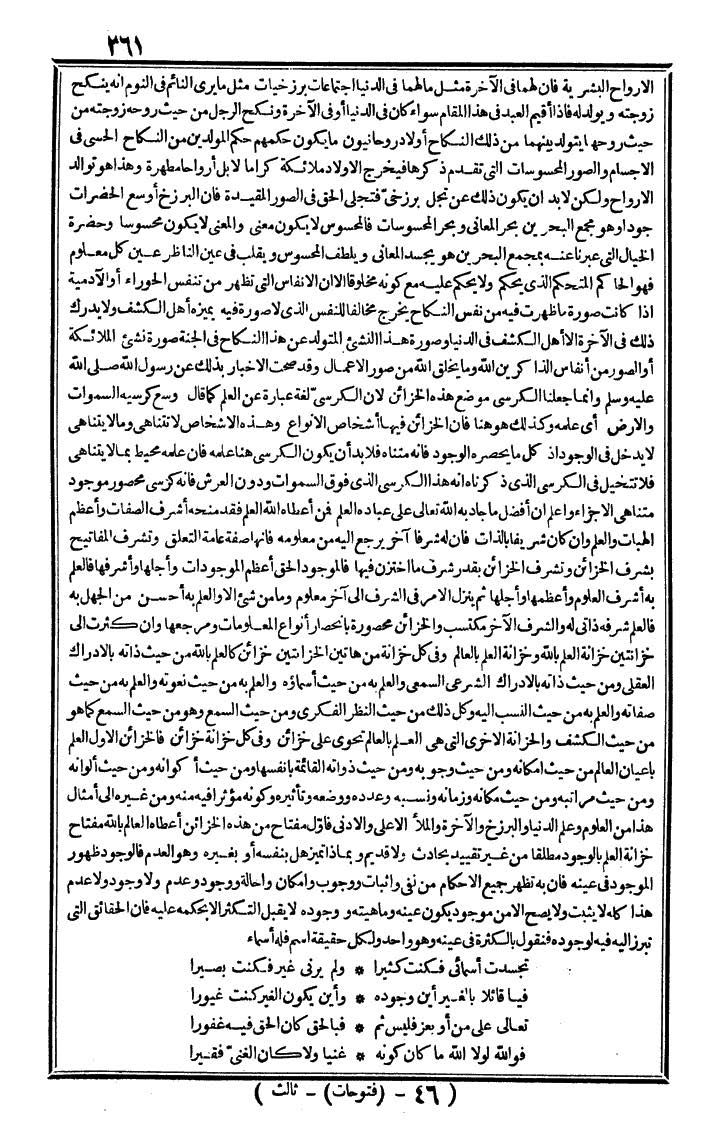 ٣٦١
الارواح البشرية فان لهما فى الآخرة مثل مالهما فى الدنيا اجتماعات برزخيات مثل مايرى النائم فى النوم انه ينكح
زوجته ويولد له فاذا أقيم العبد فى هذا المقام سواء كان فى الدنيا أوفى الآخرة ونكح الرجل من حيث روحه زوجته من
حيث روحها يتولد بينهما من ذلك النكاح أولاد روحانيون مايكون حكمهم حكم المولدين من النكاح الحسى فى
الاجسام والصور المحسوسات التى تقدم ذكرها فيخرج الاولاد ملائكة كراما لا بل أرواحا مطهرة وهذا هو توالد
الارواح ولكن لابد ان يكون ذلك عن تجل برزخىّ فتجلى الحق فى الصور المقيدة فان البرزخ أوسع الحضرات
جودا وهو مجمع البحرين بحر المعانى وبحر المحسوسات فالمحسوس لا يكون معنى والمعنى لا يكون محسوسا وحضرة
الخيال التى عبرنا عنه بمجمع البحرين هو يجسد المعانى ويلطف المحسوس ويقلب فى عين الناظر عين كل معلوم
فهو الحاكم المتحكم الذى يحكم ولا يحكم عليه مع كونه مخلوقا الا ان الانفاس التى تظهر من تنفس الحوراء أو الآدمية
اذا كانت صورة ماظهرت فيه من نفس النكاح يخرج مخالفا للنفس الذى لا صورة فيه يميزه أهل الكشف ولا يدرك
ذلك فى الآخرة الا أهل الكشف فى الدنيا وصورة هذا النشئ المتولد عن هذا النكاح فى الجنة صورة نشئ الملائكة
أو الصور من أنفاس الذاكرين الله وما يخلق الله من صور الاعمال وقد صحت الاخبار بذلك عن رسول الله صلى الله
عليه وسلم وانما جعلنا الكرسى موضع هذه الخزائن لان الكرسىّ لغة عبارة عن العلم كما قال وسع كرسيه السموات
والارض أى علمه وكذلك هو هنا فان الخزائن فيها أشخاص الانواع وهذه الاشخاص لا تتناهى وما لا يتناهى
لا يدخل فى الوجود اذ كل ما يحصره الوجود فانه متناه فلا بد أن يكون الكرسى هنا علمه فان علمه محيط بما لا يتناهى
فلا تتخيل فى الكرسى الذى ذكرناه انه هذا الكرسى الذى فوق السموات ودون العرش فانه كرسى محصور موجود
متناهى الاجزاء واعلم ان أفضل ما جاد به الله تعالى على عباده العلم فمن أعطاه الله العلم فقد منحه أشرف الصفات وأعظم
الهبات والعلم وان كان شريفا بالذات فان له شرفا آخر يرجع اليه من معلومه فانها صفة عامة التعلق وتشرف المفاتيح
بشرف الخزائن وتشرف الخزائن بقدر شرف ما اختزن فيها فالموجود الحق أعظم الموجودات وأجلها وأشرفها فالعلم
به أشرف العلوم وأعظمها وأجلها ثم ينزل الامر فى الشرف الى آخر معلوم وما من شئ الا والعلم به أحسن من الجهل به
فالعلم شرفه ذاتى له والشرف الآخر مكتسب والخزائن محصورة بانحصار أنواع المعلومات ومرجعها وان كثرت الى
خزانتين خزانة العلم بالله وخزانة العلم بالعالم وفى كل خزانة من هاتين الخزانتين خزائن كالعلم بالله من حيث ذاته بالادراك
العقلى ومن حيث ذاته بالادراك الشرعى السمعى والعلم به من حيث أسماؤه والعلم به من حيث نعوته والعلم به من حيث
صفاته والعلم به من حيث النسب اليه وكل ذلك من حيث النظر الفكرى ومن حيث السمع وهو من حيث السمع كما هو
من حيث الكشف والخزانة الاخرى التى هى العلم بالعالم تحوى على خزائن وفى كل خزانة خزائن فالخزائن الاول العلم
باعيان العالم من حيث امكانه ومن حيث وجوبه ومن حيث ذواته القائمة بانفسها ومن حيث أكوانه ومن حيث ألوانه
ومن حيث مراتبه ومن حيث مكانه وزمانه ونسبه وعدده ووضعه وتأثيره وكونه مؤثرا فيه منه ومن غيره الى أمثال
هذا من العلوم وعلم الدنيا والبرزخ والآخرة والملأ الاعلى والادنى فاوّل مفتاح من هذه الخزائن أعطاه العالم بالله مفتاح
خزانة العلم بالوجود مطلقا من غير تقييد بحادث ولا قديم وبماذا تميز هل بنفسه أو بغيره وهو العدم فالوجود ظهور
الموجود فى عينه فان به تظهر جميع الاحكام من نفى واثبات ووجوب وامكان واحالة ووجود وعدم ولا وجود ولا عدم
هذا كله لا يثبت ولا يصح الا من موجود يكون عينه وماهيته ووجوده لا يقبل التكثر الا بحكمه عليه فان الحقائق التى
تبرز اليه فيه لوجوده فنقول بالكثرة فى عينه وهو واحد ولكل حقيقة اسم فله أسماء
تجسدت أسمائى فكنت كثيرا * ولم يرنى غير فكنت بصيرا
فيا قائلا بالغير أين وجوده * وأين يكون الغير كنت غيورا
تعالى على من أو بعز فليس ثم * فبالحق كان الحق فيه غفورا
فوالله لولا الله ما كان كونه * غنيا ولا كان الغنىّ فقيرا
( ٤٦ - (فتوحات) - ثالث )